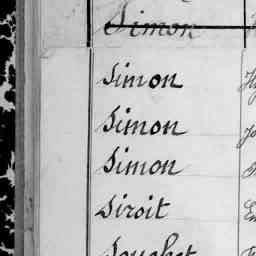 Simon
Simon
Simon
Simon
Siroit
Souchet